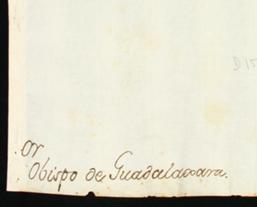 Or
Obispo de Guadalaxara.